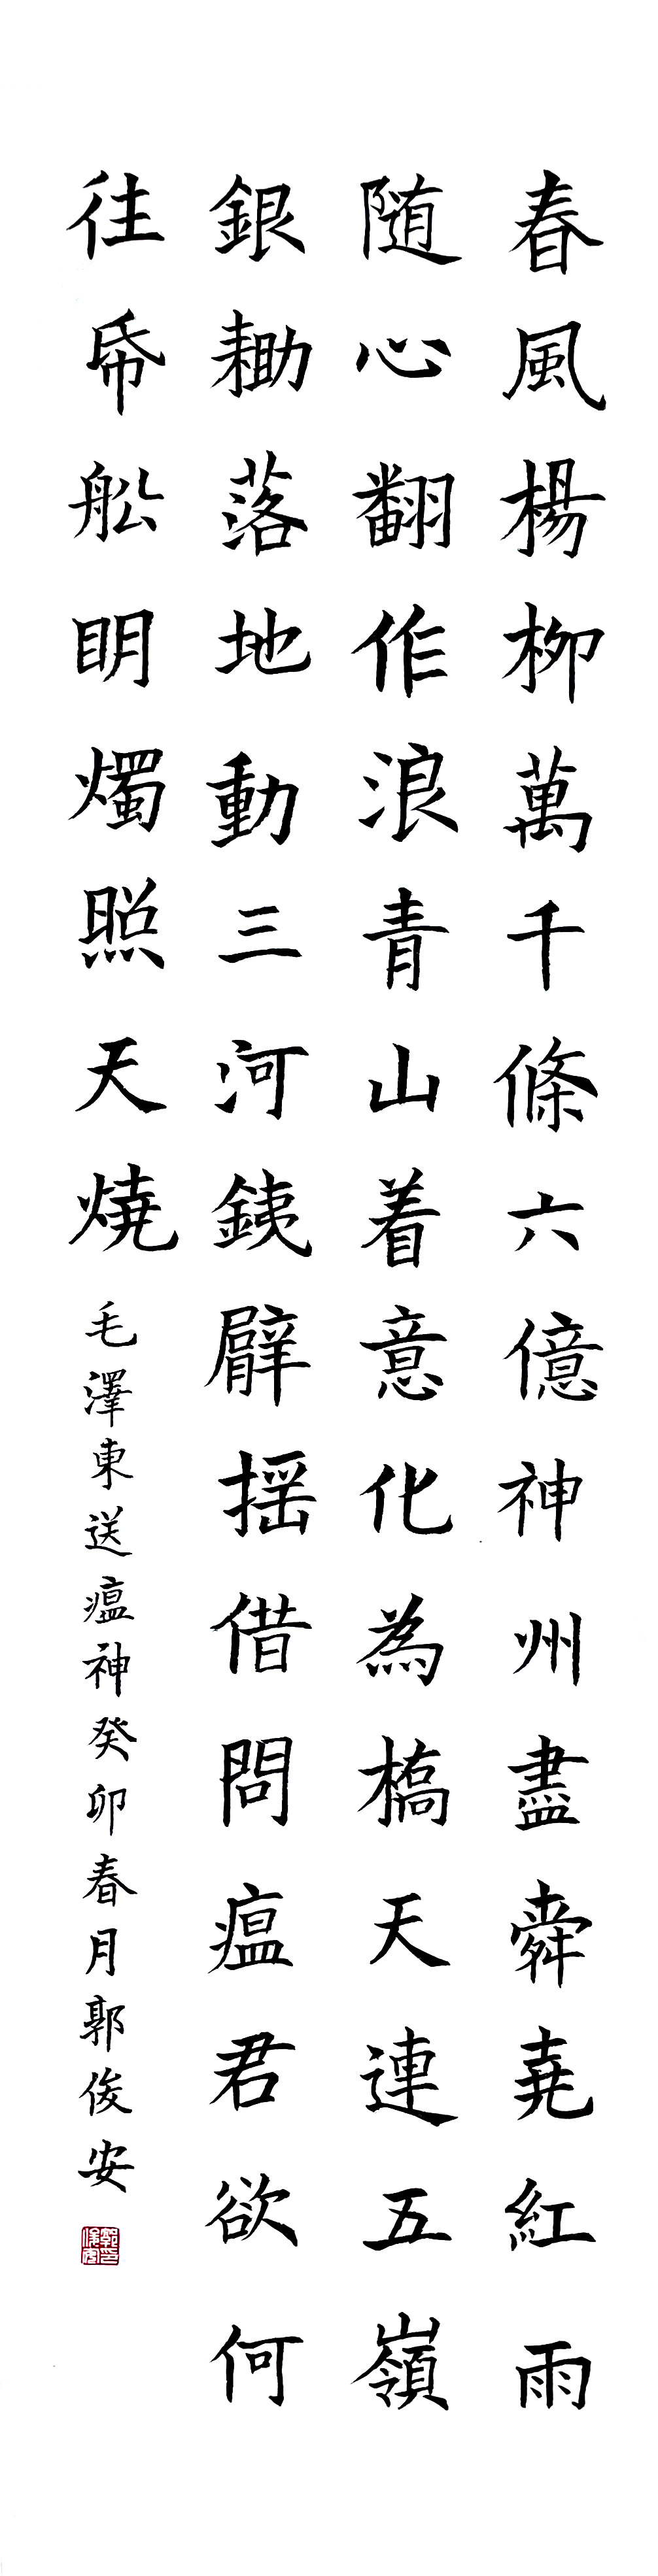 春風楊柳萬千條六億神州盡舜堯紅雨
随心翻作浪青山着意化為橋天連五嶺
銀耡落地動三河銕臂摇借問瘟君欲何
往帋舩眀燭照天燒
毛澤東送瘟神癸卯春月郭俊安
郭印俊安